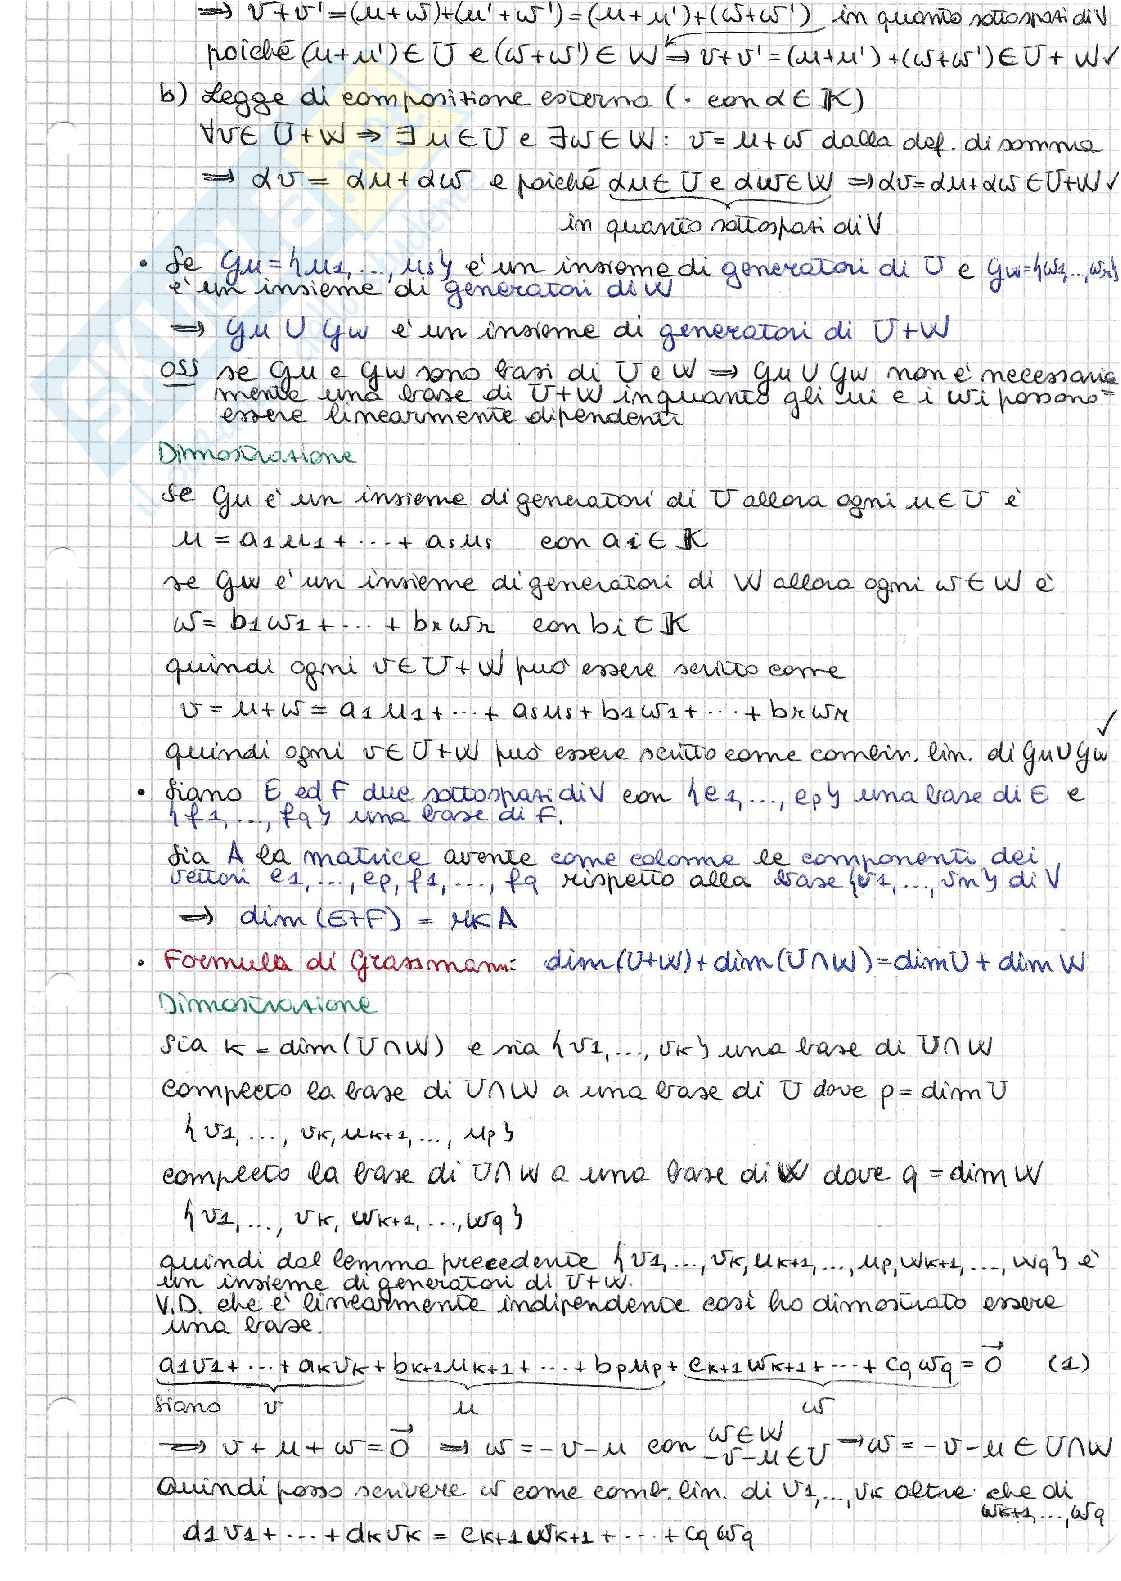 ⇒ v+v' = (u+w)+(u'+w') = (u+u')+(w+w') in quanto sottospazi di V
poiché (u+u') ∈ U e (w+w') ∈ W ⇒ v+v' = (u+u')+(w+w') ∈ U+W ✓
b) Legge di composizione esterna (· con α ∈ K)
∀v ∈ U+W ⇒ ∃ u ∈ U e ∃ w ∈ W : v = u+w dalla def. di somma
⇒ αv = αu+αw e poiché αu ∈ U e αw ∈ W ⇒ αv = αu+αw ∈ U+W ✓
in quanto sottospazi di V
• Se Gu = {u1, ..., us} è un insieme di generatori di U e Gw = {w1, ..., wr}
è un insieme di generatori di W
⇒ Gu ∪ Gw è un insieme di generatori di U+W
OSS se Gu e Gw sono basi di U e W ⇒ Gu ∪ Gw non è necessaria
mente una base di U+W in quanto gli ui e i wi possono=
essere linearmente dipendenti
Dimostrazione
Se Gu è un insieme di generatori di U allora ogni u ∈ U è
u = a1u1 + ··· + asus con ai ∈ K
se Gw è un insieme di generatori di W allora ogni w ∈ W è
w = b1w1 + ··· + brwr con bi ∈ K
quindi ogni v ∈ U+W può essere scritto come
v = u+w = a1u1 + ··· + asus + b1w1 + ··· + brwr
quindi ogni v ∈ U+W può essere scritto come combin. lin. di Gu ∪ Gw ✓
• Siano E ed F due sottospazi di V con {e1, ..., ep} una base di E e
{f1, ..., fq} una base di F.
Sia A la matrice avente come colonne le componenti dei
vettori e1, ..., ep, f1, ..., fq rispetto alla base {v1, ..., vn} di V
⇒ dim (E+F) = rk A
• Formula di Grassmann: dim(U+W)+dim(U∩W)=dimU+dimW
Dimostrazione
Sia k = dim(U∩W) e sia {v1, ..., vk} una base di U∩W
completo la base di U∩W a una base di U dove p = dim U
{v1, ..., vk, uk+1, ..., up}
completo la base di U∩W a una base di W dove q = dim W
{v1, ..., vk, wk+1, ..., wq}
quindi dal lemma precedente {v1, ..., vk, uk+1, ..., up, wk+1, ..., wq} è
un insieme di generatori di U+W.
V.D. che è linearmente indipendente così ho dimostrato essere
una base.
a1v1 + ··· + akvk + bk+1uk+1 + ··· + bpup + ck+1wk+1 + ··· + cqwq = 0⃗ (1)
siano v u w
⇒ v+u+w = 0⃗ ⇒ w = -v-u con w ∈ W -v-u ∈ U → w = -v-u ∈ U∩W
Quindi posso scrivere w come comb. lin. di v1, ..., vk oltre che di
wk+1, ..., wq
d1v1 + ··· + dkvk = ck+1wk+1 + ··· + cqwq